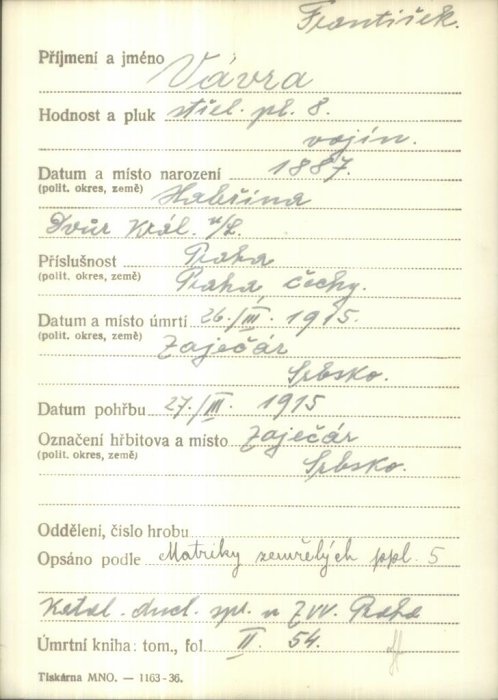 František.
Příjmení a jméno Vávra
Hodnost a pluk střel. pl. 8.
vojín.
Datum a místo narození 1887.
(polit. okres, země) Habřina
Dvůr Král. n/L.
Příslušnost Praha
(polit. okres, země) Praha Čechy.
Datum a místo úmrtí 26./III. 1915.
(polit. okres, země) Zaječár
Srbsko.
Datum pohřbu 27./III. 1915
Označení hřbitova a místo Zaječár
(polit. okres, země) Srbsko.
Oddělení, číslo hrobu
Opsáno podle Matriky zemřelých ppl. 5
Katol. duch. spr. u ZVV. Praha
Úmrtní kniha: tom., fol. II. 54.
Tiskárna MNO. — 1163-36.